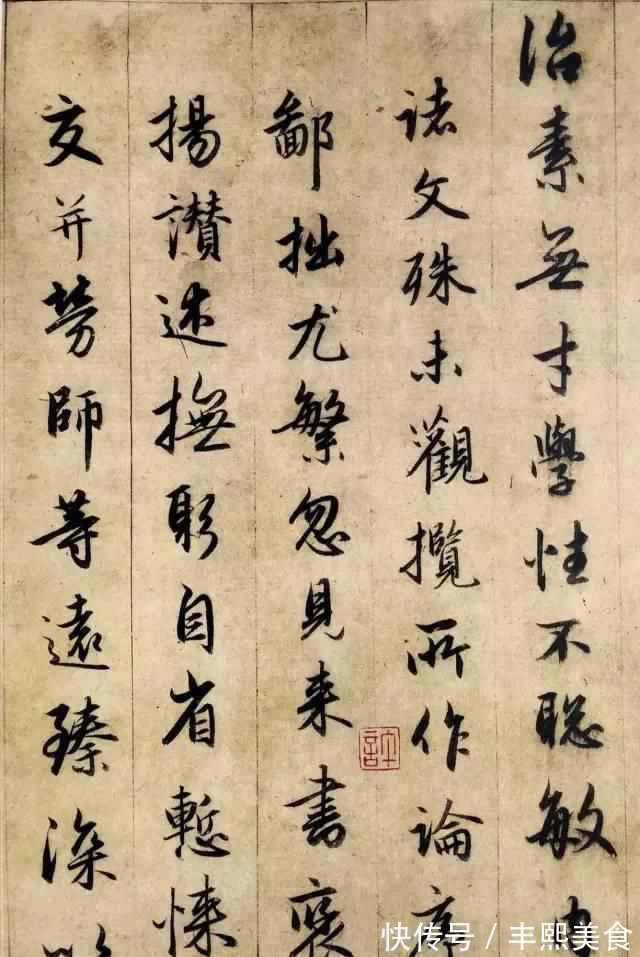 治素無才學性不聡敏
諸文殊未觀攬所作論序
鄙拙尤繁忽見来書褒
揚讃述撫躬自省慙悚
交并勞師等遠臻深
許
快传号/丰熙美食